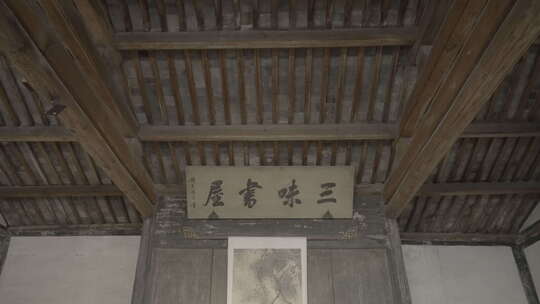 三味書屋